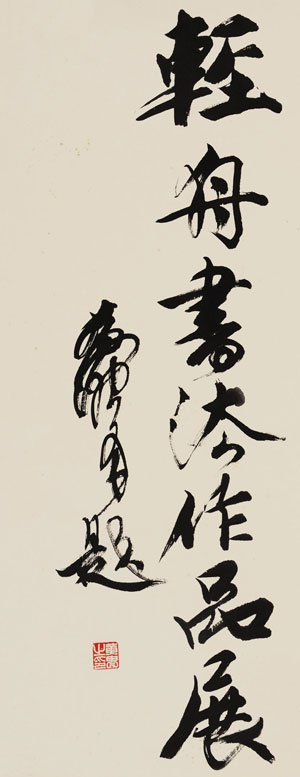 輕舟書法作品展
題